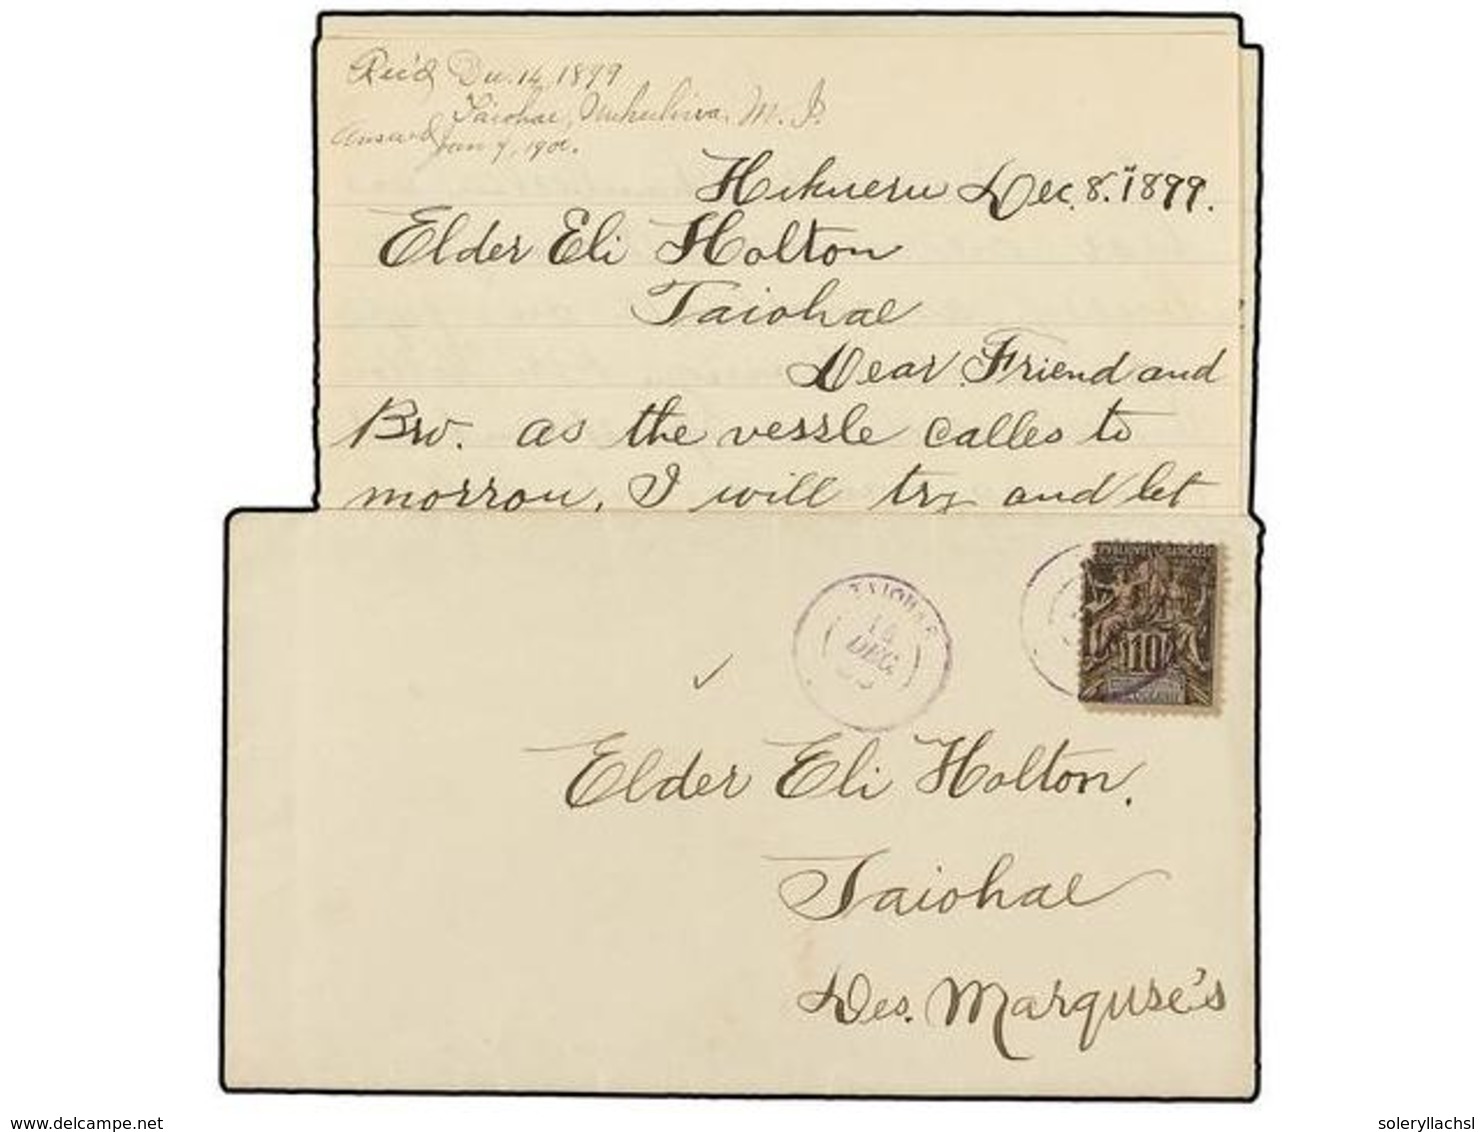 Rec'd Dec. 14, 1899
Taiohae, Nukuhiva. M. I.
Answ'd Jan 9, 1900.
Hikueru Dec. 8." 1899.
Elder Eli Holton
Taiohae
Dear Friend and
Bro. as the vessle calles to
morrow, I will try and let
REPUBLIQUE FRANCAISE
TAIOHAE
14
DEC.
10
Elder Eli Holton.
Taiohae
Des. Marquse's
delcampe.net
soleryllachsl